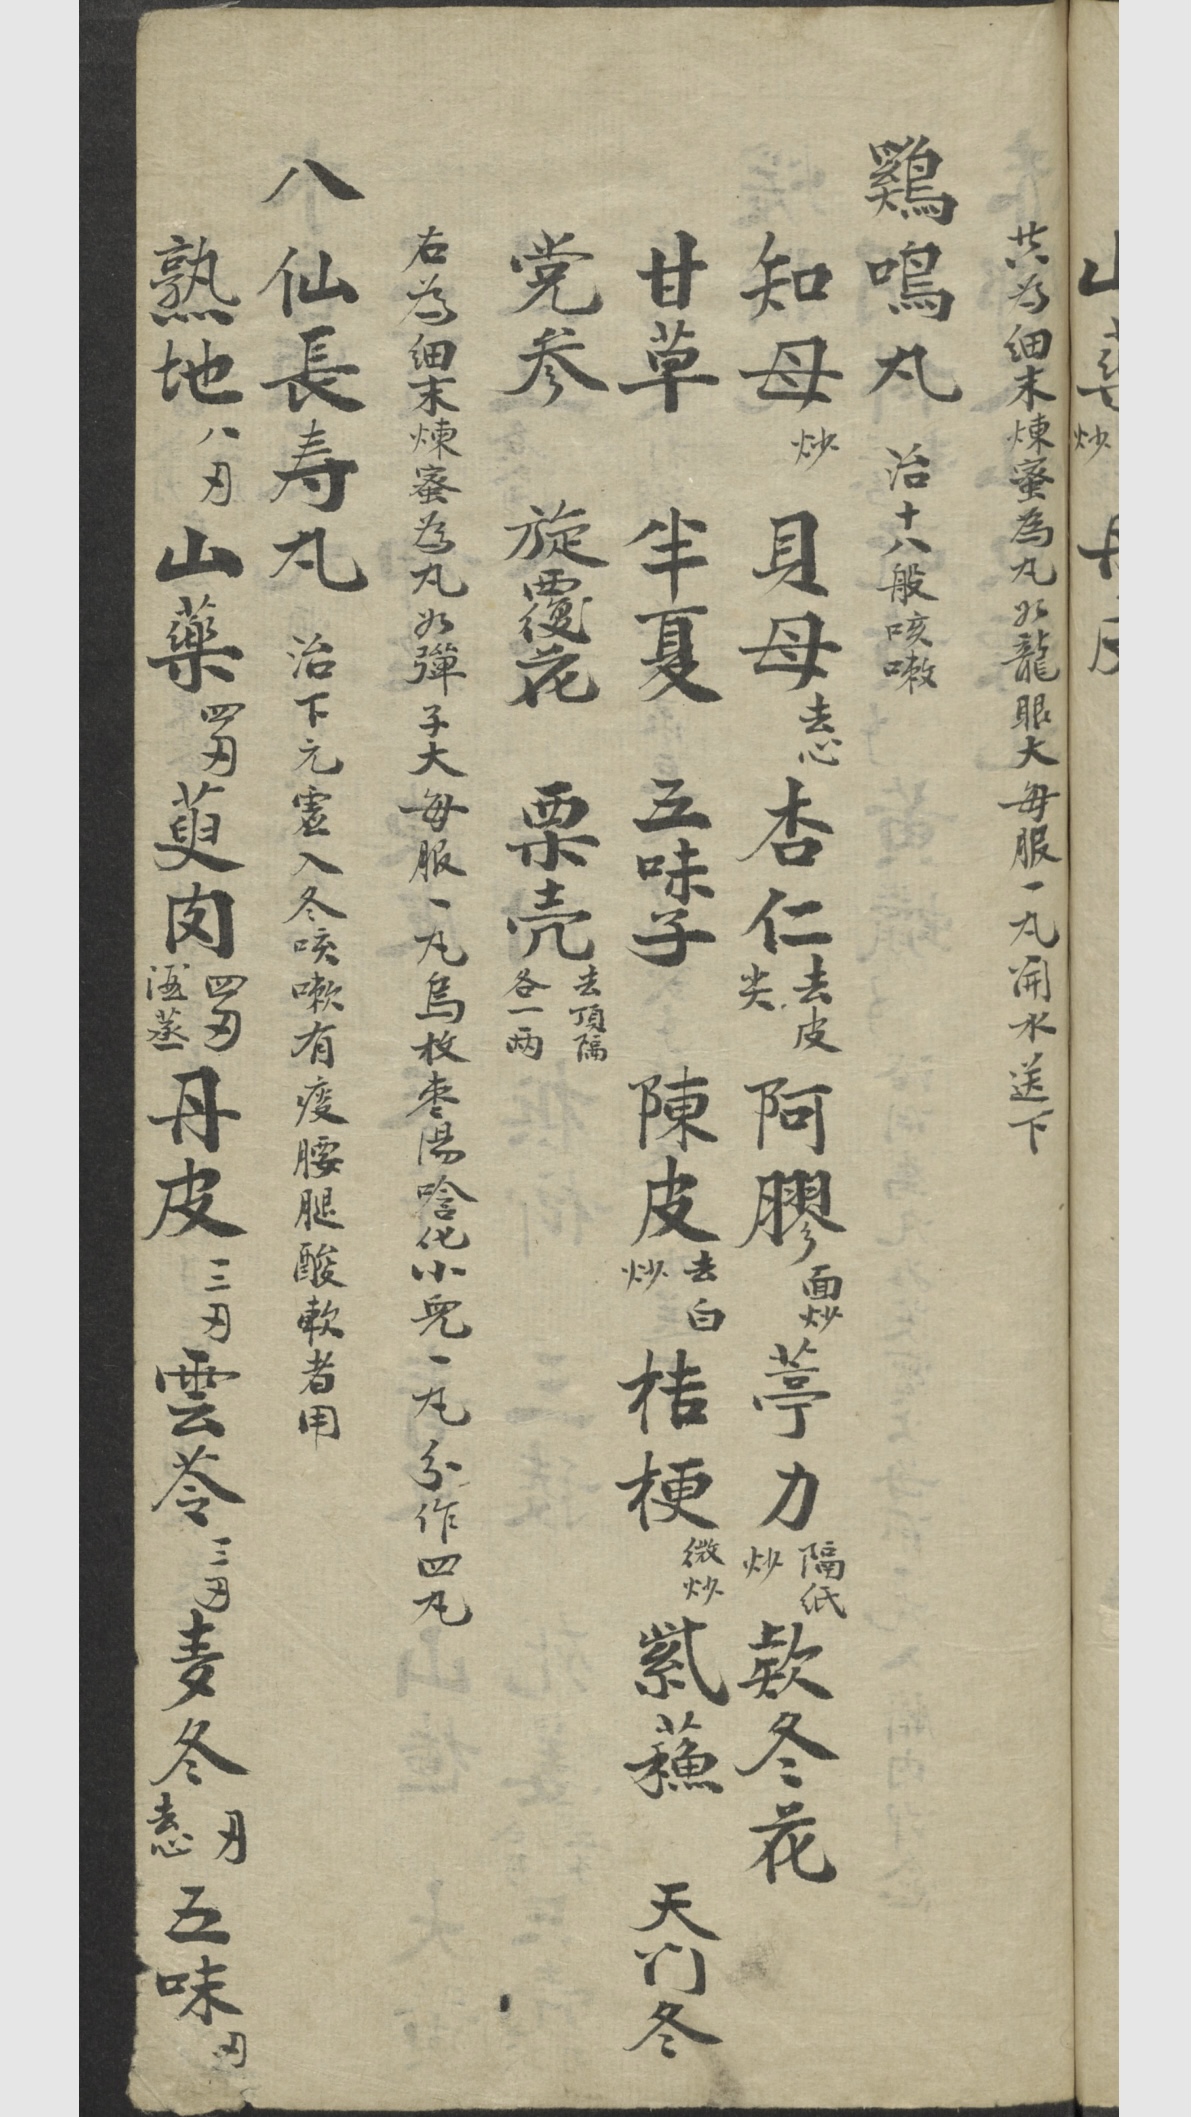 山藥炒 丹皮
共為细末煉蜜為丸如龍眼大每服一丸開水送下
鷄鳴丸 治十八般咳嗽
知母炒 貝母去心 杏仁去皮尖 阿膠面炒 葶力隔紙炒 欵冬花
甘草 半夏 五味子 陳皮去白炒 桔梗微炒 紫蘓 天门冬
党参 旋覆花 栗壳去頂隔各一两
右為细末煉蜜為丸如彈子大每服一丸烏枚枣湯唅化小兒一丸分作四丸
八仙長寿丸 治下元虛入冬咳嗽有痰腰腿酸軟者用
熟地八刄 山藥四刄 萸肉四刄酒蒸 丹皮三刄 雲苓三刄 麦冬刄去心 五味刄